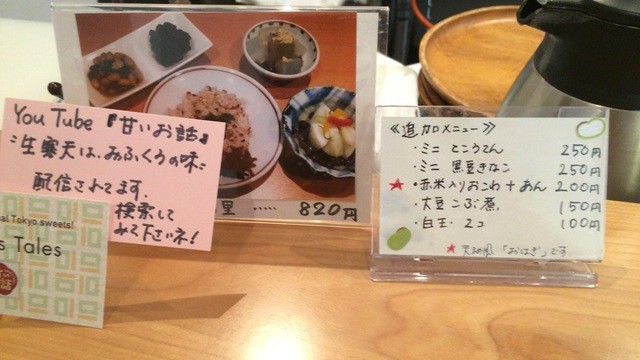 YouTube『甘いお話』
生寒天は、みふくの味
配信されてます。
検索して
みて下さいネ!
al Tokyo sweets!
s Tales
里 ‥‥‥ 820円
≪追加メニュー≫
・ミニ ところてん 250円
・ミニ 黒豆きなこ 250円
★・赤米入りおこわ+あん 200円
・大豆こぶ煮 150円
・白玉 2コ 100円
★ 「おはぎ」です